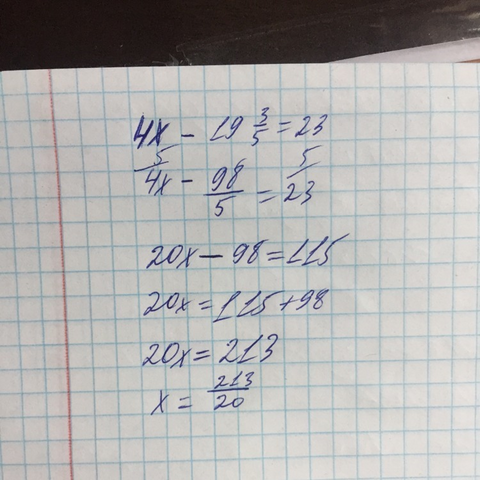 4x - 19 3/5 = 23
5 5
4x - 98/5 = 23
20x - 98 = 115
20x = 115 + 98
20x = 213
x = 213/20